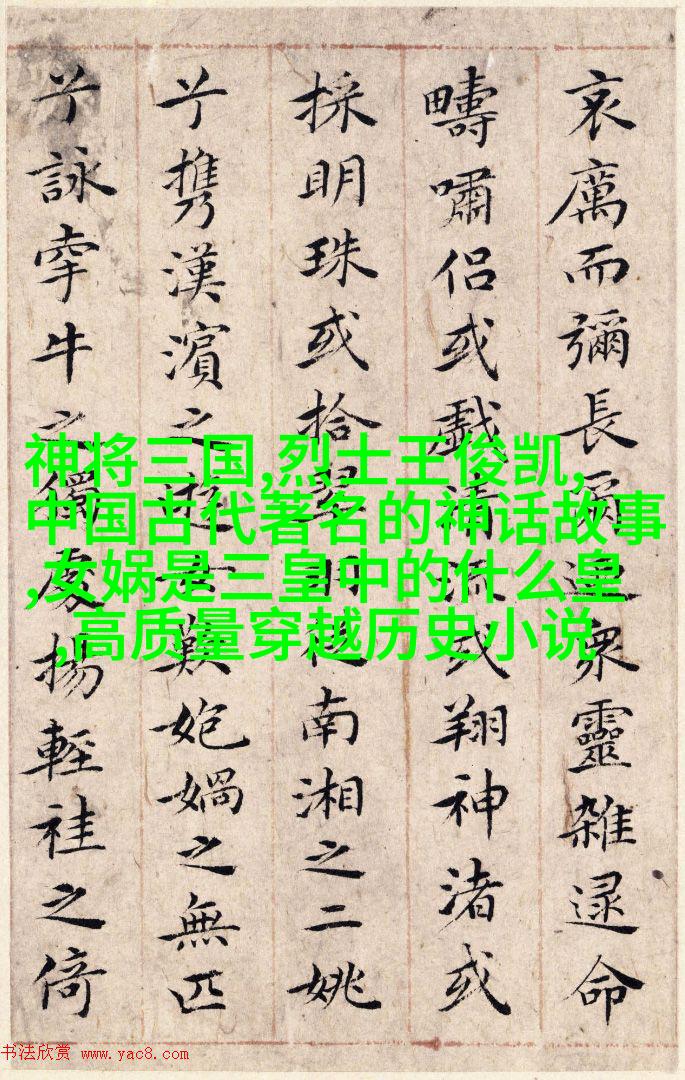 哀厲而彌長爾迺眾靈雜遝命
疇嘯侶或戲清流或翔神渚或
採明珠或拾翠羽從南湘之二姚
兮携漢濱之遊女難媧之無匹
兮詠牽牛之獨處揚輕袿之倚
神将三国,烈士王俊凯,
中国古代著名的神话故事
,女娲是三皇中的什么皇
,高质量穿越历史小说
书法欣赏 www.yac8.com